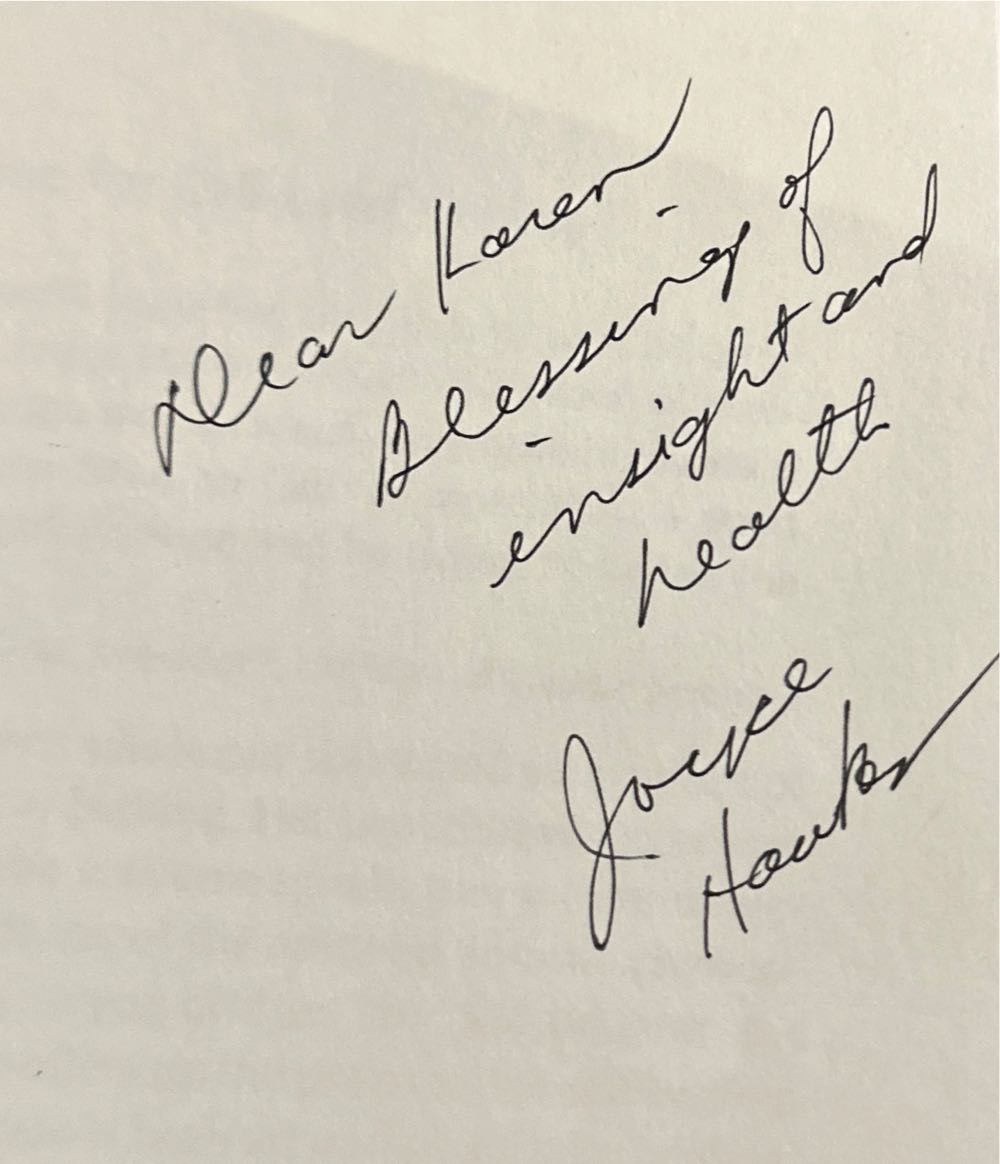 Dear Karen
Blessing of
insight and
health
Joyce
Hawkes